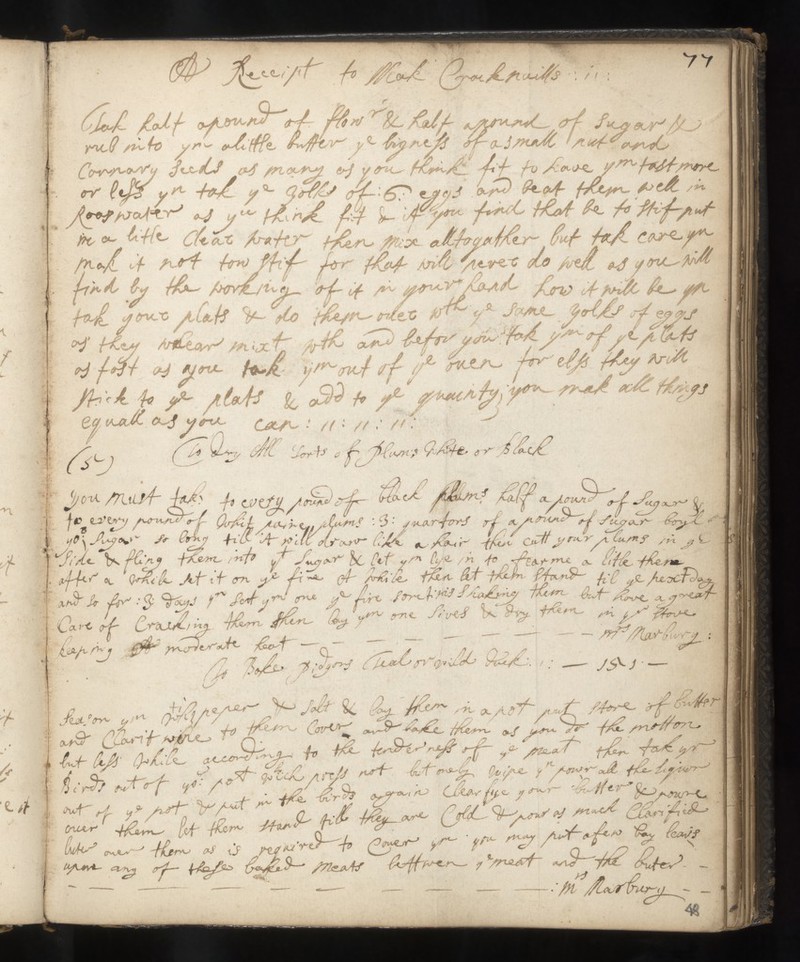 77
A Receipt to Mak Cracknuills : 11 :
Tak half a pound of flowr & half a pound of Sugar &
rub into ym a little butter ye bigness of a small nut and
Carraway Seeds as many as you think fit to have ym tast more
or less yn tak ye yolks of :6: eggs and beat them well in
Rooswater as you think fit & if you find that be to stif put
in a litle Clear water then mix alltogather but tak care yn
mak it not tow stif for that will never do well as you will
find by the working of it in your hand how it will be yn
tak your plats & do them over wth ye same yolks of eggs
as they wear mixt wth and befor you tak ym of ye plats
as fast as you tak ym out of ye oven for elss they will
stick to ye plats & add to ye quantity, you mak all things
equall as you can : 11 : 11 : 11 : 11 :
(5) To dry All Sorts of Plums White or Black
you must take to every pound of black plums half a pound of Sugar &
to every pound of Whit plums :3: quartors of a pound of Sugar boyl
yor Sugar so long till it will draw like a hair then cutt your plums in ye
Side & fling them into yt Sugar & let ym lye in to a litle then
after a while set it on ye fire a while then let them Stand til ye next day
and so for :3 days yn sett ym one ye fire somtims Shaking them but have a great
Care of Cracking them then lay ym one Sives & dry them in yr Stove
keeping moderate heat — — — — — — — Mrs Marbury :
To Bake Pidgons Teal or wild duck : : — 151 —
Season ym with peper & Salt & lay them in a pot put store of butter
and Clarit wine to them Cover and bake them as you do the motton
but less While according to the tenderness of ye meat then tak yr
Birds out of yor pot which press not but only wipe yn power all the liquor
out of ye pot & put in the birds again Clearfye your butter & powre
over them let them stand till they are Cold & pour as much Clarified
buter over them as is required to Cover ym you may put a few bay leavs
upon any of these baked meats bettwen ye meat and the buter —
— — — — — — — — : Mrs Marbury — —
48